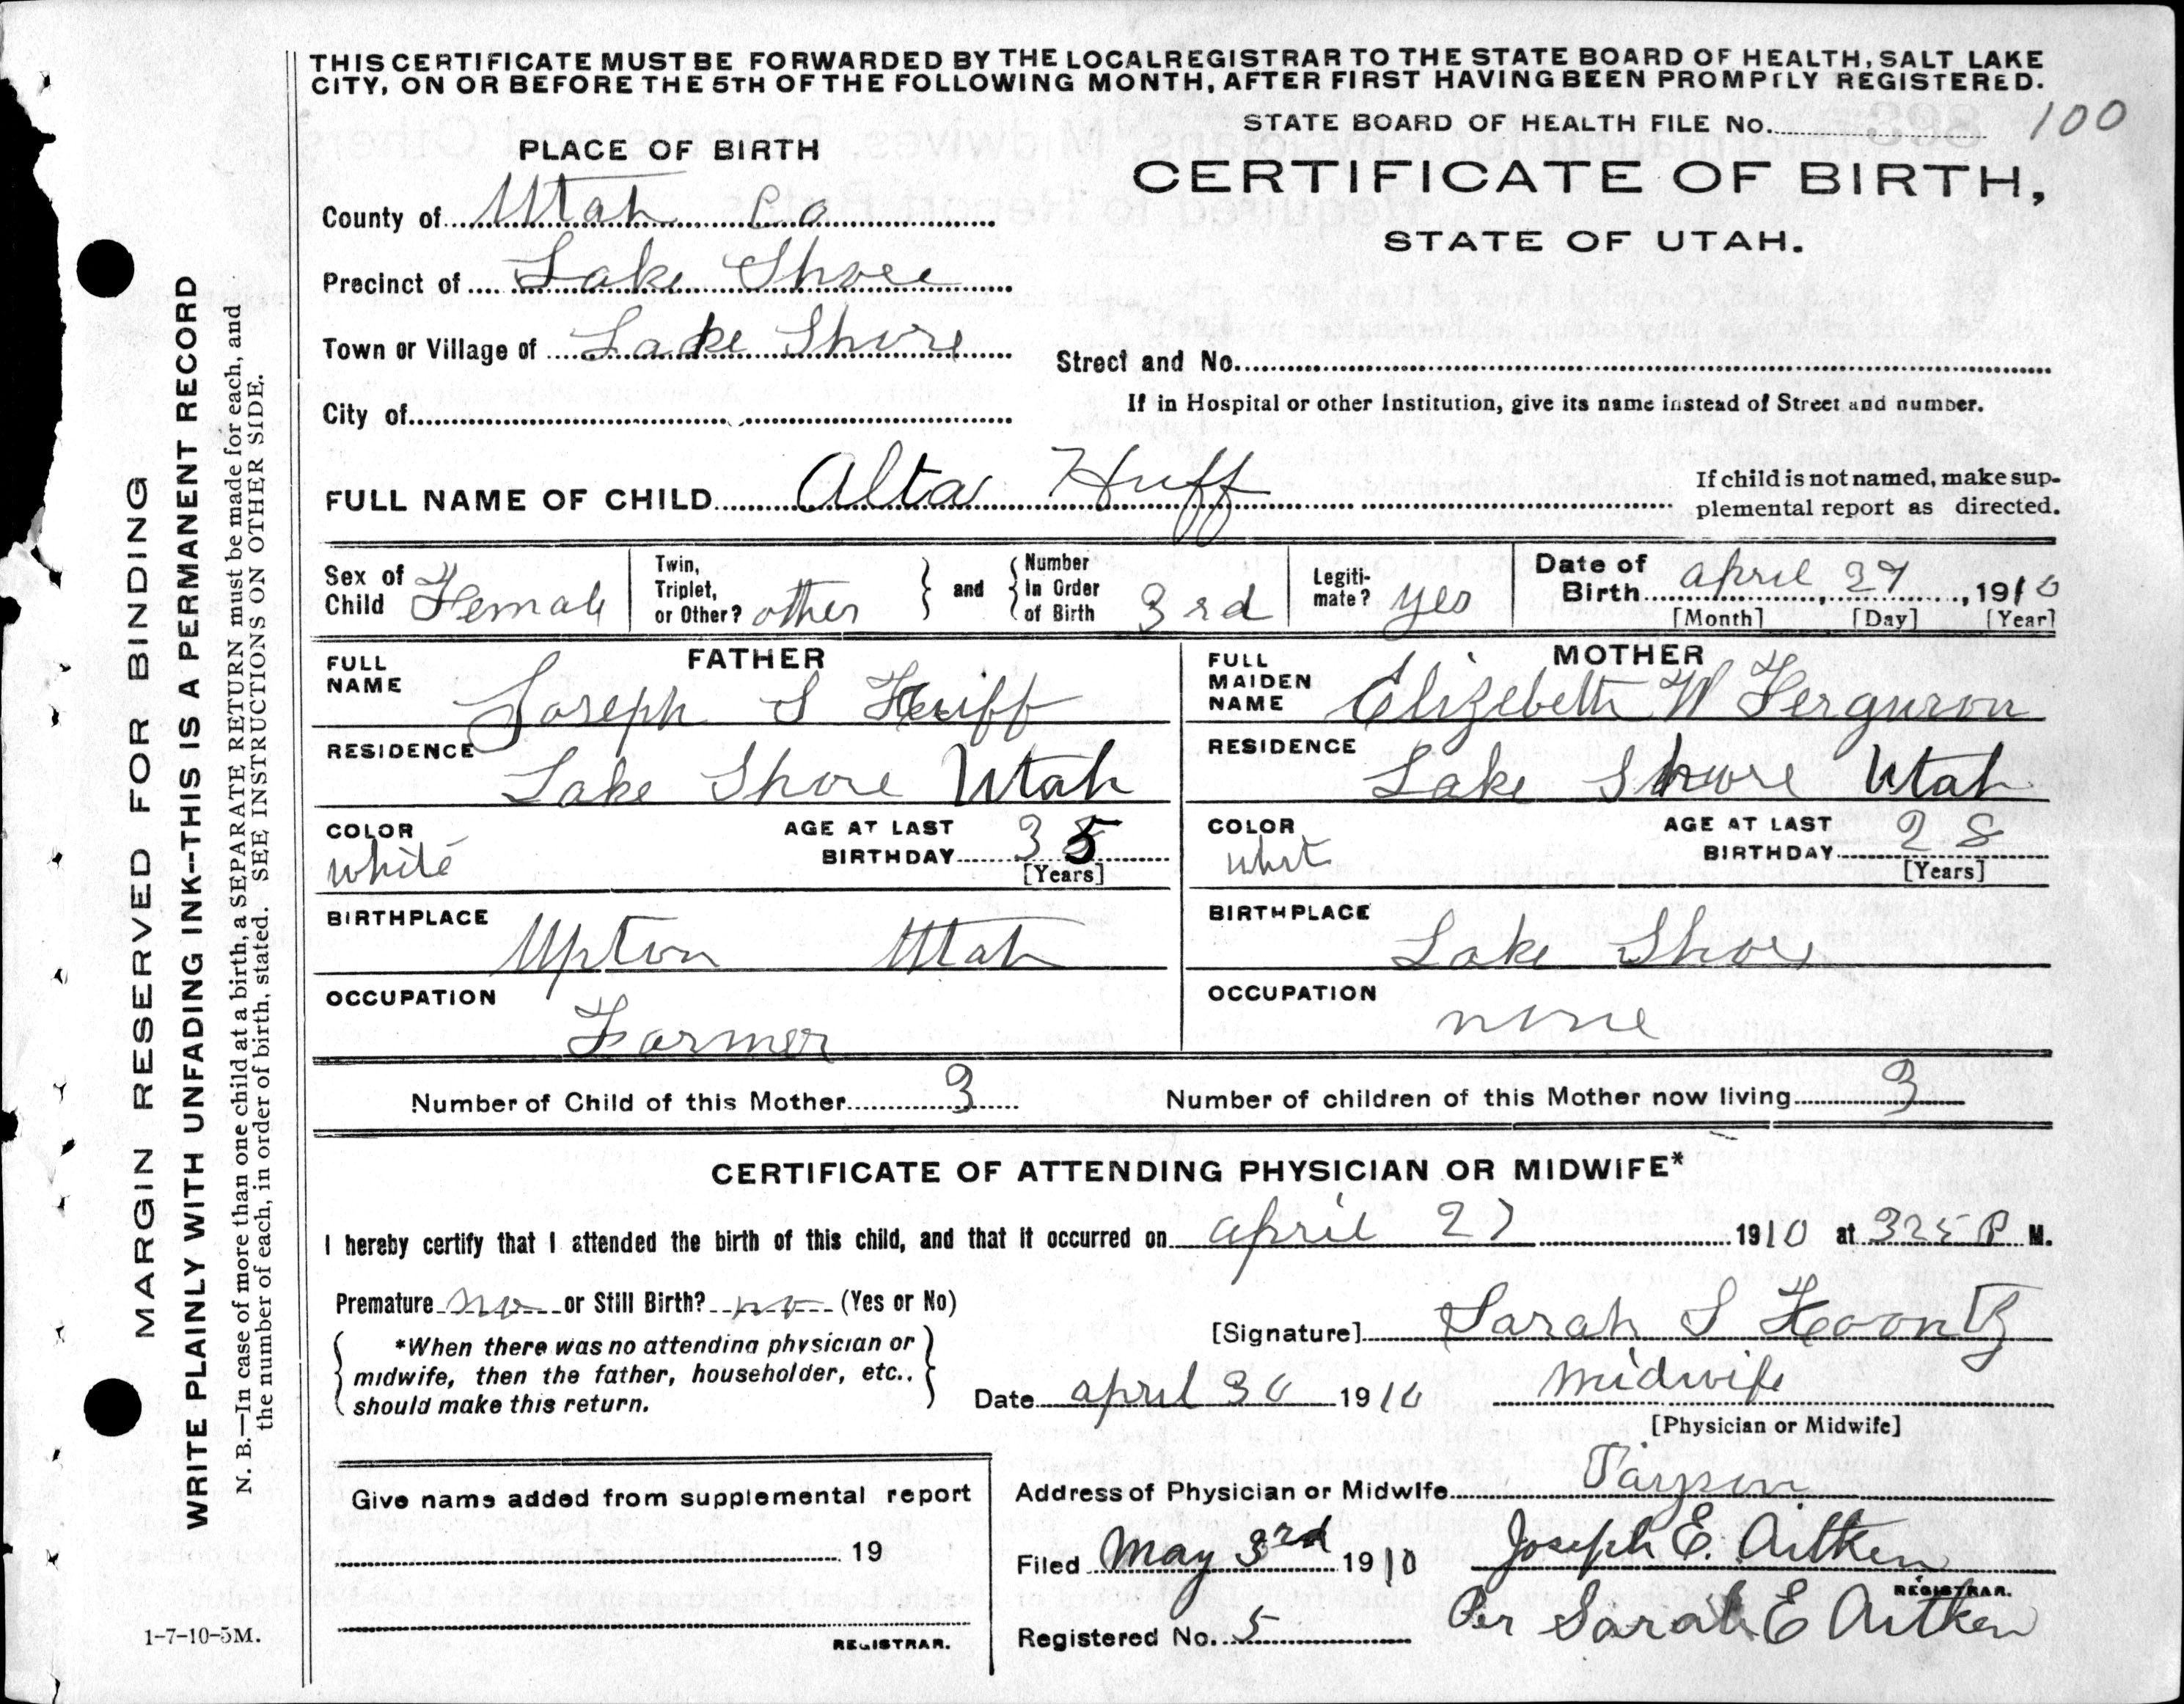 THIS CERTIFICATE MUST BE FORWARDED BY THE LOCAL REGISTRAR TO THE STATE BOARD OF HEALTH, SALT LAKE
CITY, ON OR BEFORE THE 5TH OF THE FOLLOWING MONTH, AFTER FIRST HAVING BEEN PROMPTLY REGISTERED.
STATE BOARD OF HEALTH FILE No. 100
PLACE OF BIRTH
CERTIFICATE OF BIRTH,
STATE OF UTAH.
County of Utah Co
Precinct of Lake Shore
Town or Village of Lake Shore
Street and No.
City of
If in Hospital or other Institution, give its name instead of Street and number.
FULL NAME OF CHILD Alta Huff
If child is not named, make sup-
plemental report as directed.
Sex of Child Female
Twin, Triplet, or Other? other
and Number In Order of Birth 3rd
Legiti-mate? yes
Date of Birth april, 27, 1910
[Month] [Day] [Year]
FATHER
FULL NAME Joseph S Huff
RESIDENCE Lake Shore Utah
COLOR white
AGE AT LAST BIRTHDAY 35
[Years]
BIRTHPLACE Upton Utah
OCCUPATION Farmer
MOTHER
FULL MAIDEN NAME Elizebeth W Ferguson
RESIDENCE Lake Shore Utah
COLOR whit
AGE AT LAST BIRTHDAY 28
[Years]
BIRTHPLACE Lake Shore
OCCUPATION none
Number of Child of this Mother 3 Number of children of this Mother now living 3
CERTIFICATE OF ATTENDING PHYSICIAN OR MIDWIFE*
I hereby certify that I attended the birth of this child, and that it occurred on april 27 1910 at 325 P M.
Premature no or Still Birth? no (Yes or No)
*When there was no attending physician or
midwife, then the father, householder, etc.,
should make this return.
[Signature] Sarah S Koontz
Date april 30 1910 midwife
[Physician or Midwife]
Give name added from supplemental report
19
REGISTRAR.
Address of Physician or Midwife Payson
Filed May 3rd 1910 Joseph E. Aitken
REGISTRAR.
Registered No. 5 Per Sarah E Aitken
1-7-10-5M.
MARGIN RESERVED FOR BINDING
WRITE PLAINLY WITH UNFADING INK--THIS IS A PERMANENT RECORD
N. B.—In case of more than one child at a birth, a SEPARATE RETURN must be made for each, and
the number of each, in order of birth, stated. SEE INSTRUCTIONS ON OTHER SIDE.